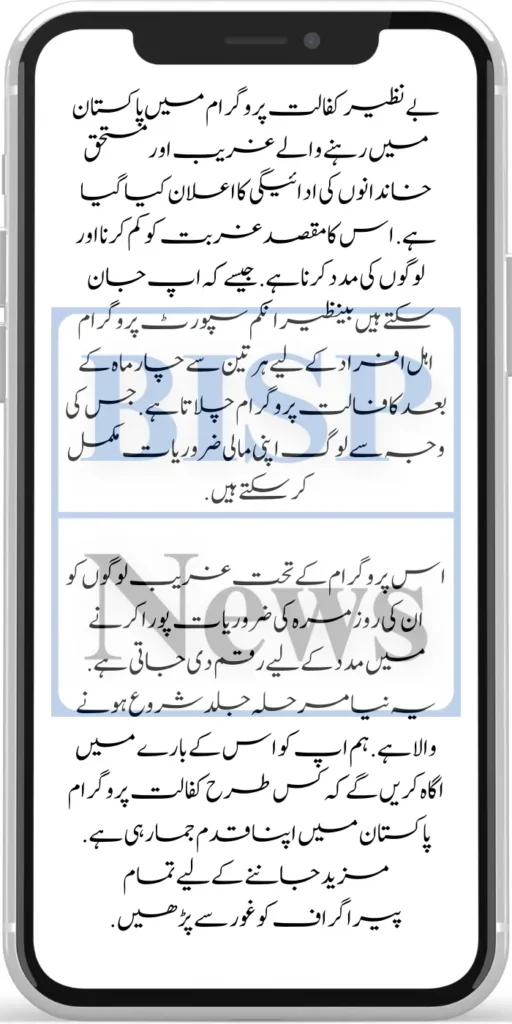 بے نظیر کفالت پروگرام میں پاکستان
میں رہنے والے غریب اور مستحق
خاندانوں کی ادائیگی کا اعلان کیا گیا
ہے. اس کا مقصد غربت کو کم کرنا اور
لوگوں کی مدد کرنا ہے. جیسے کہ اپ جان
سکتے ہیں بینظیر انکم سپورٹ پروگرام
اہل افراد کے لیے ہر تین سے چار ماہ کے
بعد کافالت پروگرام چلاتا ہے. جس کی
وجہ سے لوگ اپنی مالی ضروریات مکمل
کر سکتے ہیں.
BISP
اس پروگرام کے تحت غریب لوگوں کو
ان کی روز مرہ کی ضروریات پورا کرنے
میں مدد کے لیے رقم دی جاتی ہے.
یہ نیا مرحلہ جلد شروع ہونے
والا ہے. ہم اپ کو اس کے بارے میں
اگاہ کریں گے کہ کس طرح کفالت پروگرام
پاکستان میں اپنا قدم جما رہی ہے.
مزید جاننے کے لیے تمام
پیراگراف کو غور سے پڑھیں.
News